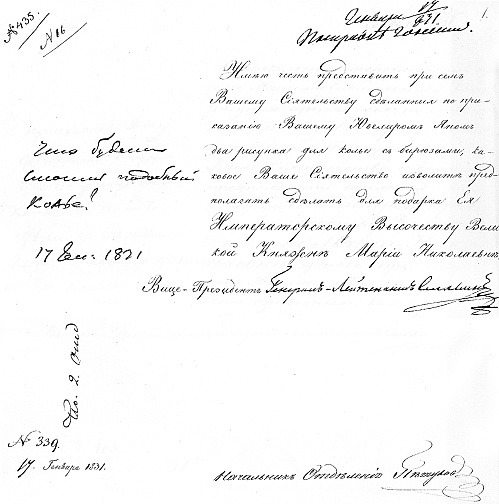 № 435.
№ 86
Генваря 17
831.
1.
Имѣю честь представить при семъ
Вашему Сіятельству сдѣланныя по при-
казанію Вашему Ювелиромъ Яномъ
два рисунка для колье съ бирюзами, ка-
ковое Ваше Сіятельство изволите пред-
полагать сдѣлать для подарка Ея
Императорскому Высочеству Вели-
кой Княжнѣ Маріи Николаевнѣ
Что будетъ
стоить подобный
колье?
17 Ген: 1831
Вице-Президентъ Генералъ-Лейтенантъ
По 2 Отд
№ 339.
17. Генваря 1831.
Начальникъ Отдѣленія Пѣтухов